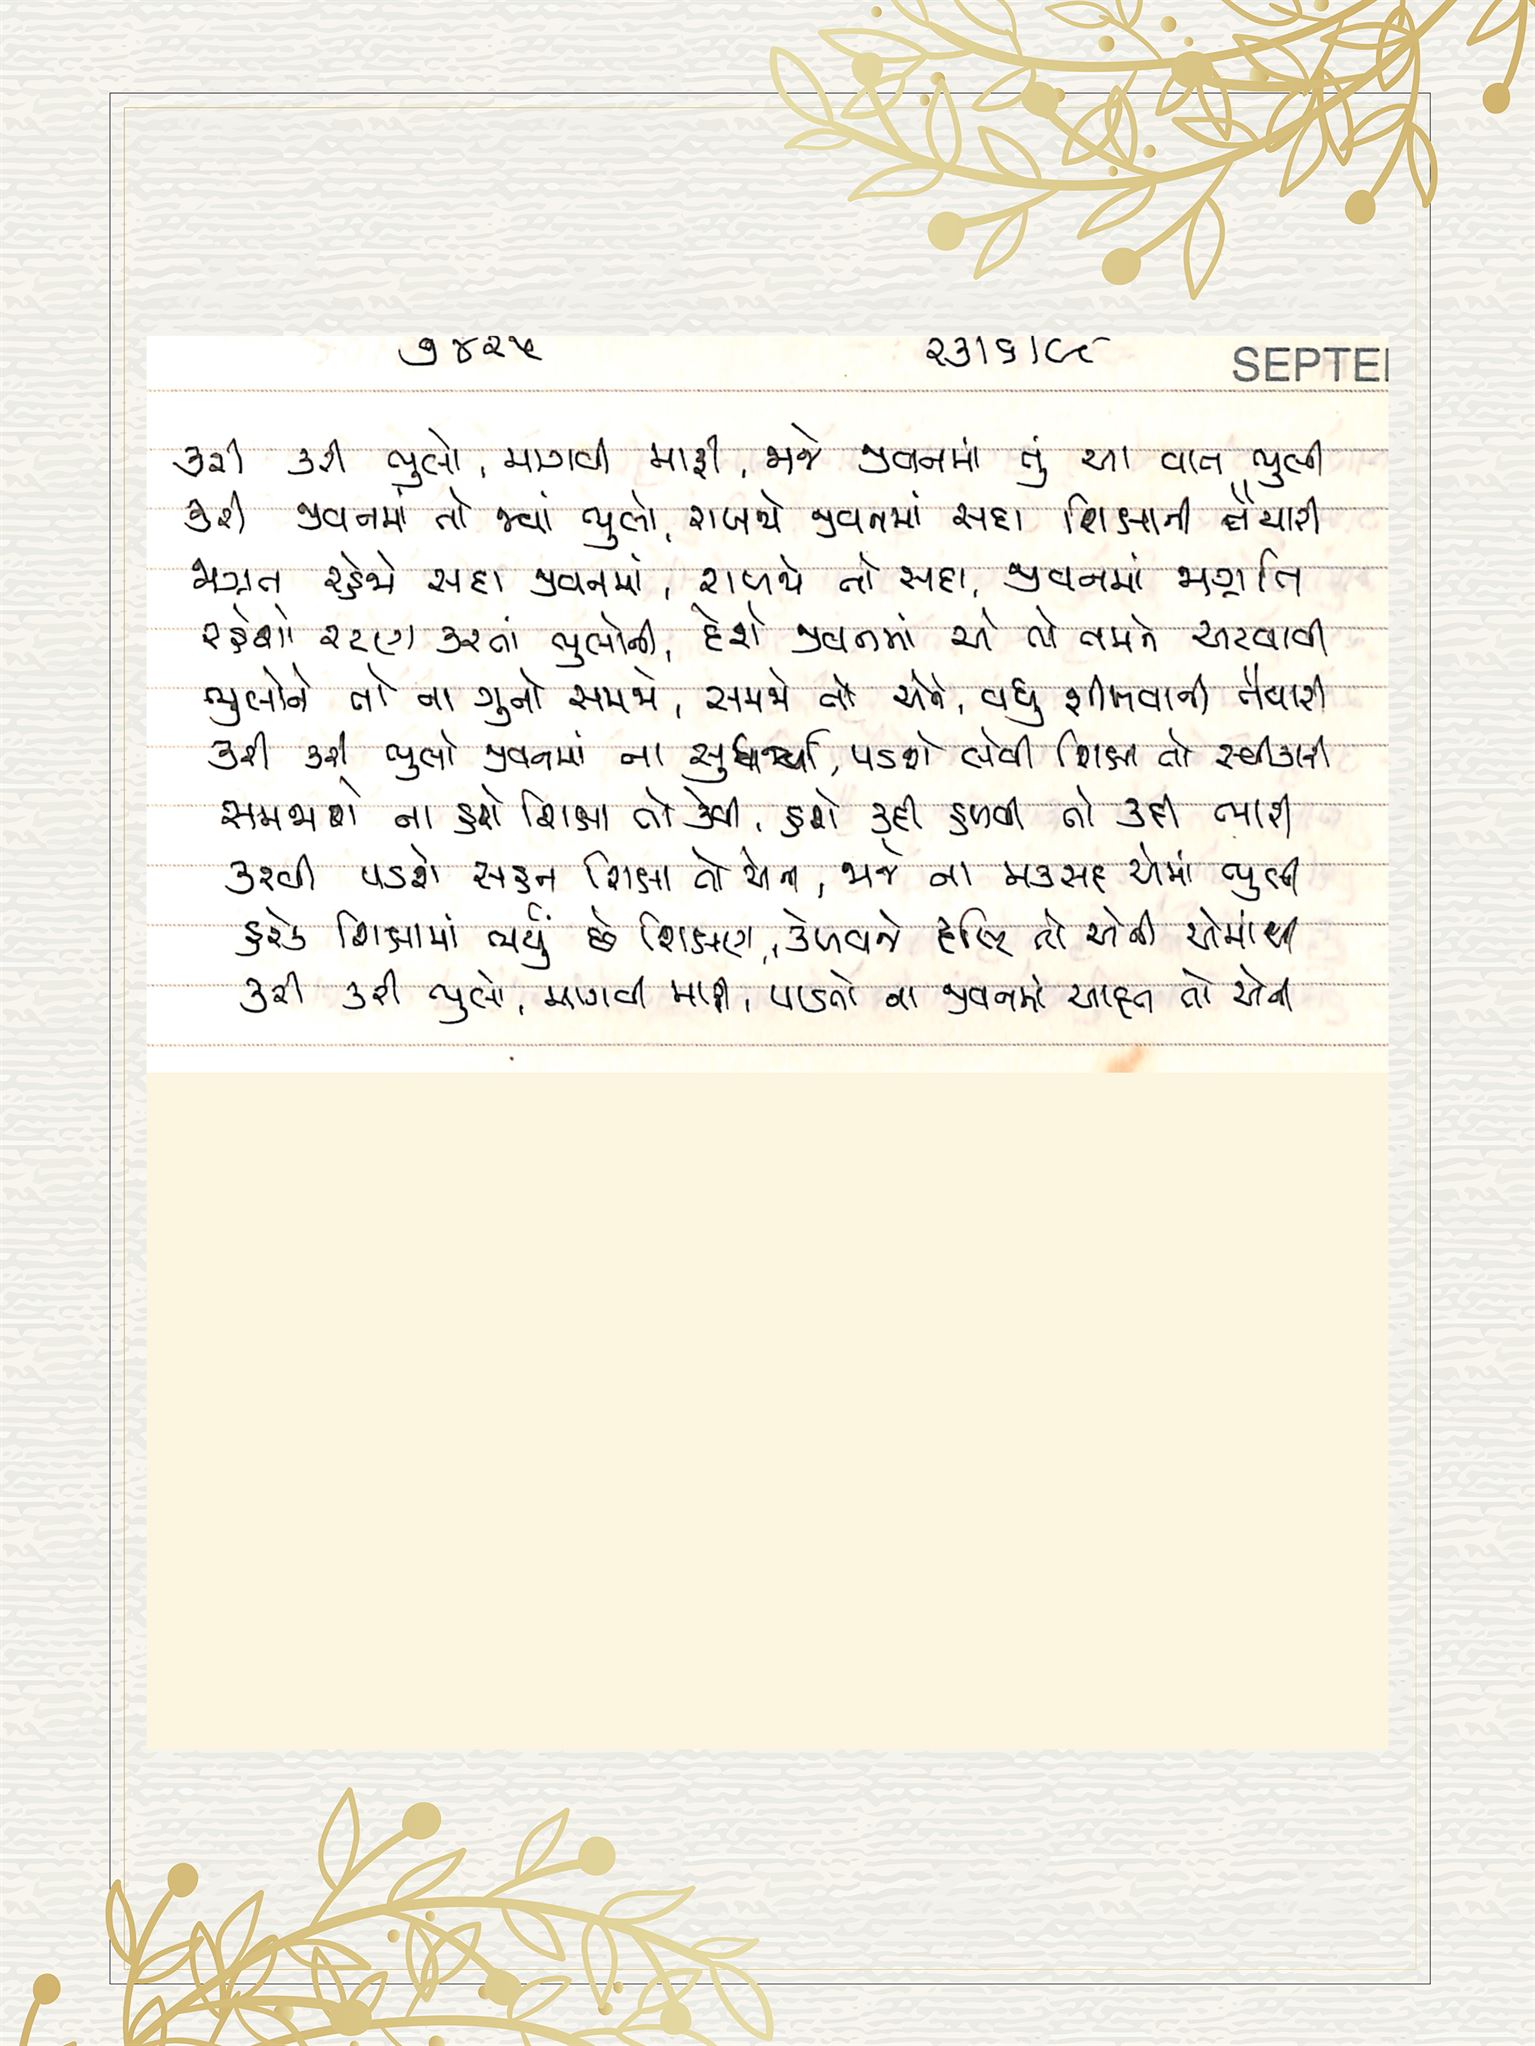 ૭૪૨૫ ૨૩।૬।૯૮ SEPTE
કરી કરી ભુલો, માગવી માફી, ભજે જીવનમાં તું આ વાત ભુલી
કરી જીવનમાં તો જ્યાં ભુલો, રાખજે જીવનમાં સદા શિક્ષાની તૈયારી
જાગ્રત રહેજે સદા જીવનમાં, રાખજે તો સદા, જીવનમાં જાગ્રતિ
રહેશો રટણ કરતાં ભુલોની, દેશે જીવનમાં એ તો તમને અટવાવી
ભુલોને તો ના ગુનો સમજે, સમજે તો એને, વધુ શીખવાની તૈયારી
કરી કરી ભુલો જીવનમાં ના સુધર્યા, પડશે લેવી શિક્ષા તો સ્વીકારી
સમજાશે ના હશે શિક્ષા તો કેવી, હશે કદી હળવી તો કદી ભારી
કરવી પડશે સહન શિક્ષા તો એની, ભજે ના મકસદ એમાં ભુલી
હરેક શિક્ષામાં ભર્યું છે શિક્ષણ, કેળવજે દૃષ્ટિ તો એની એમાંથી
કરી કરી ભુલો, માગવી માફી, પાડતો ના જીવનમાં આદત તો એની